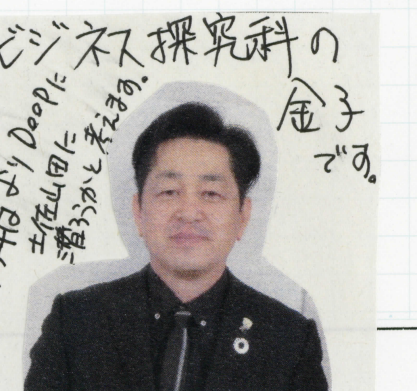 ビジネス探究科の
金子
です。
よりDeePに
土佐山田に
潜ろうかと考えます。